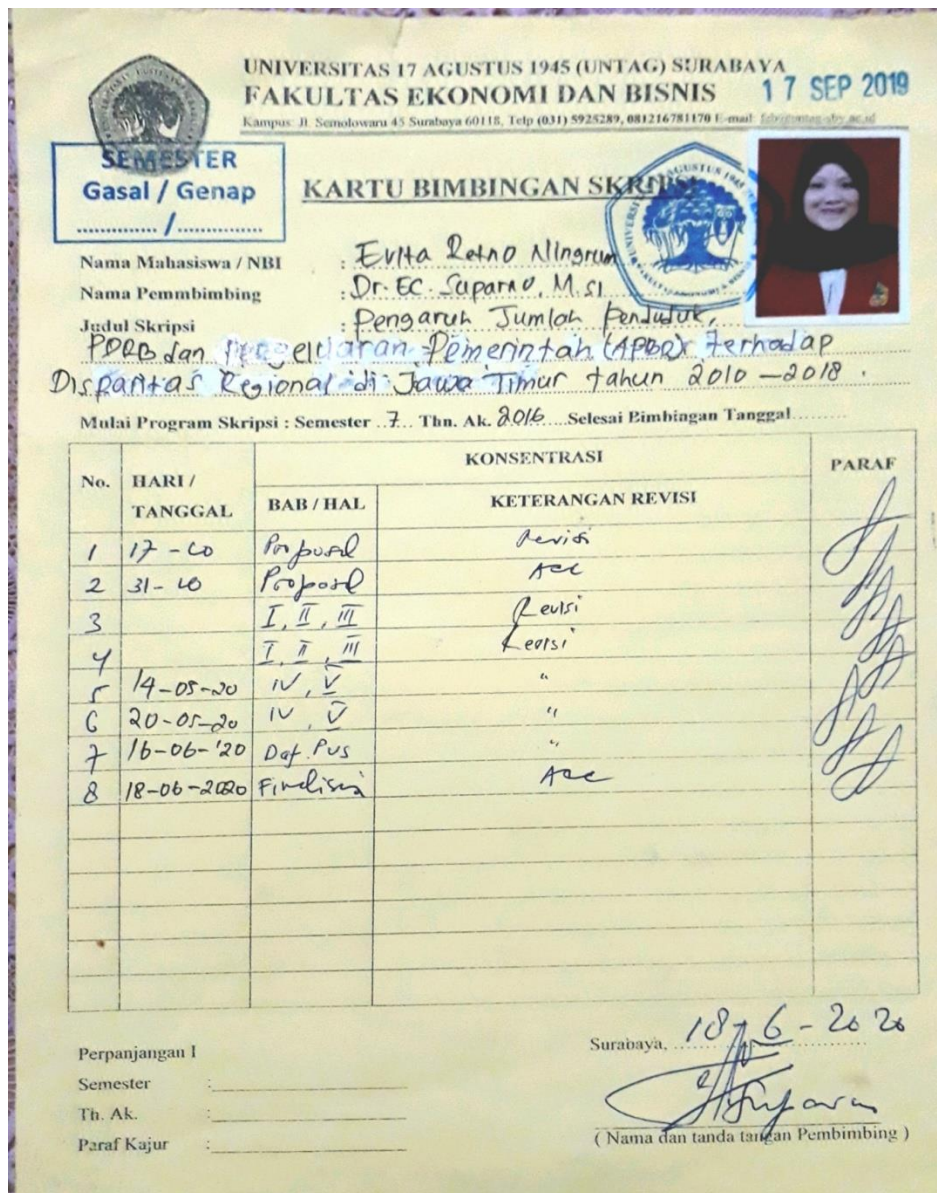 UNIVERSITAS 17 AGUSTUS 1945 (UNTAG) SURABAYA
FAKULTAS EKONOMI DAN BISNIS
17 SEP 2019
Kampus Jl. Semolowaru 45 Surabaya 60118, Telp (031) 5925289, 081216781170 E-mail:
SEMESTER
Gasal / Genap
............. / ..............
KARTU BIMBINGAN SKRIPSI
Nama Mahasiswa / NBI : Evita Retno Ningrum
Nama Pemmbimbing : Dr. EC. Suparno, M.si
Judul Skripsi : Pengaruh Jumlah Penduduk,
PDRB dan Pengeluaran Pemerintah (APBD) terhadap
Disparitas Regional di Jawa Timur tahun 2010 - 2018.
Mulai Program Skripsi : Semester ..7.. Thn. Ak. 2016 ....Selesai Bimbingan Tanggal.........
No. HARI / TANGGAL KONSENTRASI PARAF
BAB / HAL KETERANGAN REVISI
1 17 - 10 Proposal Revisi
2 31 - 10 Proposal Acc
3 I, II, III Revisi
4 I, II, III Revisi
5 14-05-20 IV, V "
6 20-05-20 IV, V "
7 16-06-'20 Daf. Pus "
8 18-06-2020 Acc
Perpanjangan I
Semester :
Th. Ak. :
Paraf Kajur :
Surabaya, 18 - 6 - 2020
Suparno
( Nama dan tanda tangan Pembimbing )